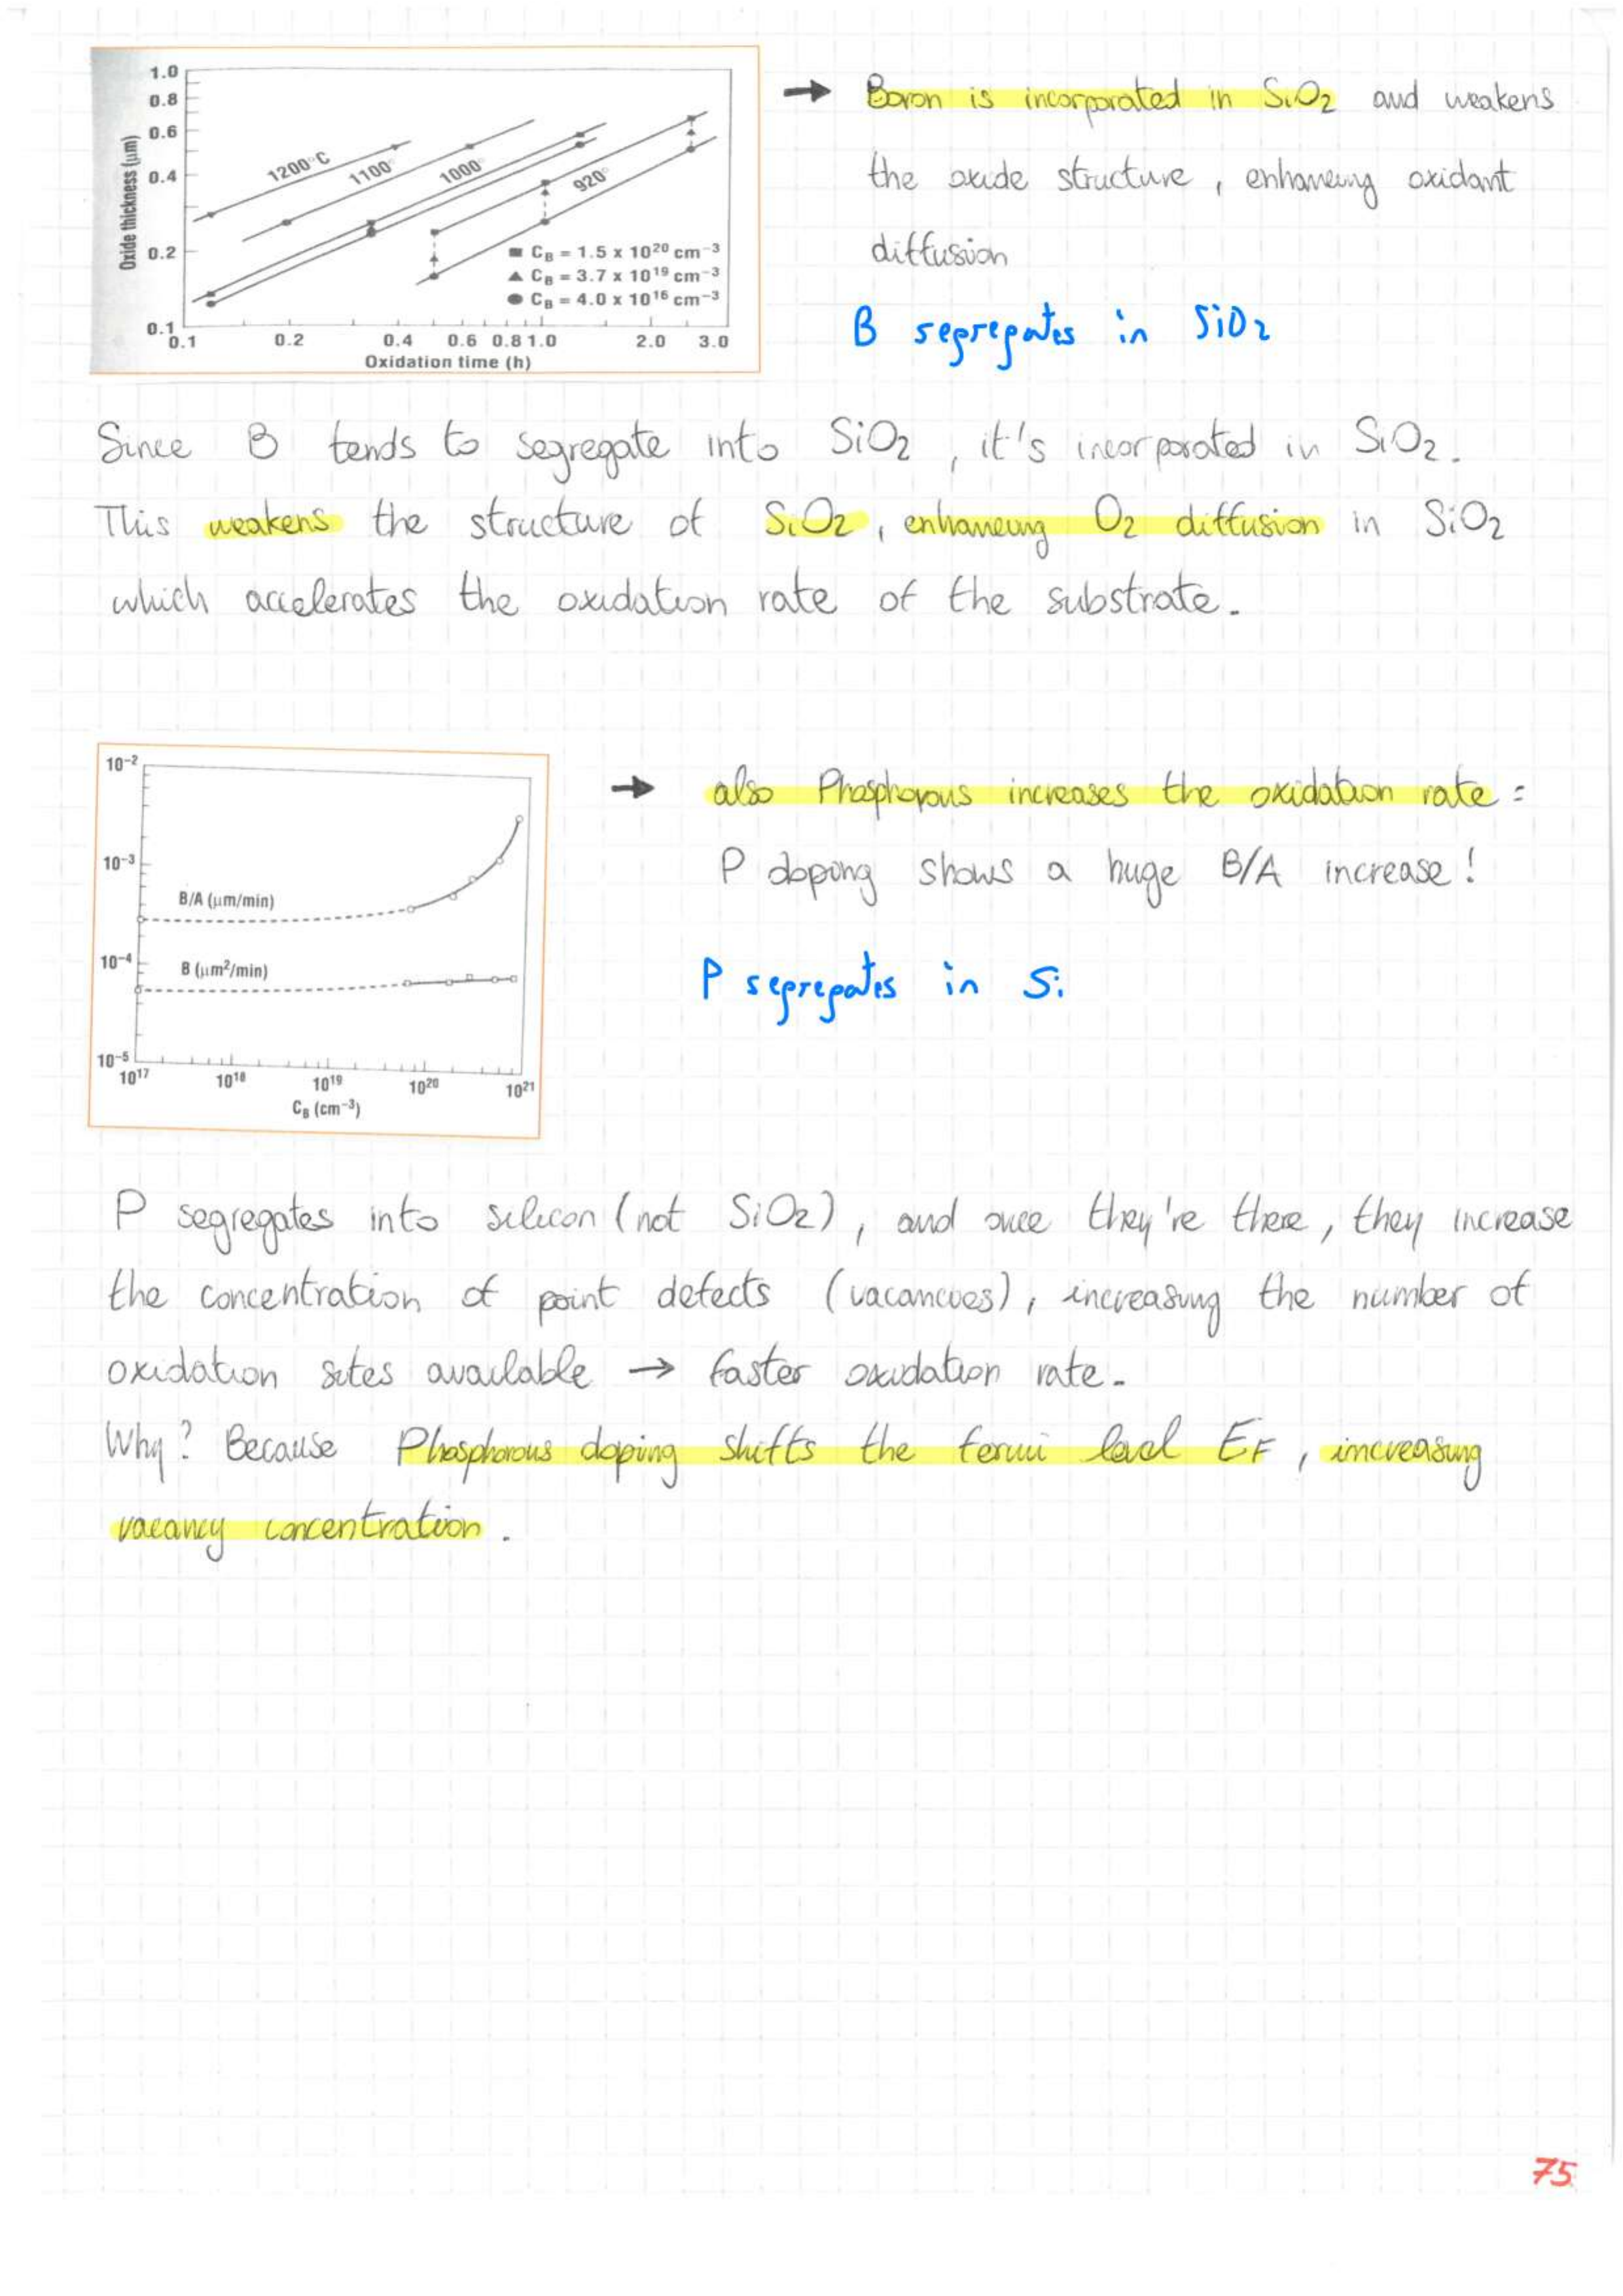 1.0
0.8
0.6
0.4
0.2
0.1
Oxide thickness (μm)
1200°C
1100°
1000°
920°
■ CB = 1.5 x 10²⁰ cm⁻³
▲ CB = 3.7 x 10¹⁹ cm⁻³
● CB = 4.0 x 10¹⁶ cm⁻³
0.1 0.2 0.4 0.6 0.8 1.0 2.0 3.0
Oxidation time (h)
→ Boron is incorporated in SiO2 and weakens
the oxide structure, enhancing oxidant
diffusion
B segregates in SiO2
Since B tends to segregate into SiO2, it's incorporated in SiO2.
This weakens the structure of SiO2, enhancing O2 diffusion in SiO2
which accelerates the oxidation rate of the substrate.
10⁻²
10⁻³
B/A (μm/min)
10⁻⁴
B (μm²/min)
10⁻⁵
10¹⁷ 10¹⁸ 10¹⁹ 10²⁰ 10²¹
CB (cm⁻³)
→ also Phosphorous increases the oxidation rate:
P doping shows a huge B/A increase!
P segregates in Si
P segregates into silicon (not SiO2), and once they're there, they increase
the concentration of point defects (vacancies), increasing the number of
oxidation sites available → faster oxidation rate.
Why? Because Phosphorous doping shifts the fermi level EF, increasing
vacancy concentration.
75